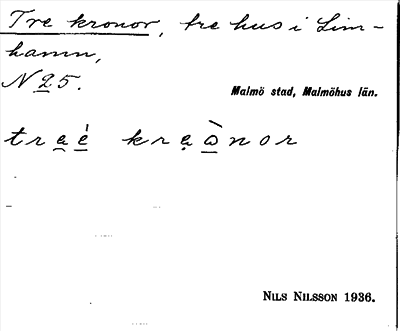 Tre kronor, tre hus i Lim-
hamn,
N 25.
Malmö stad, Malmöhus län.
tra̯é̱ krạò̱nor
NILS NILSSON 1936.